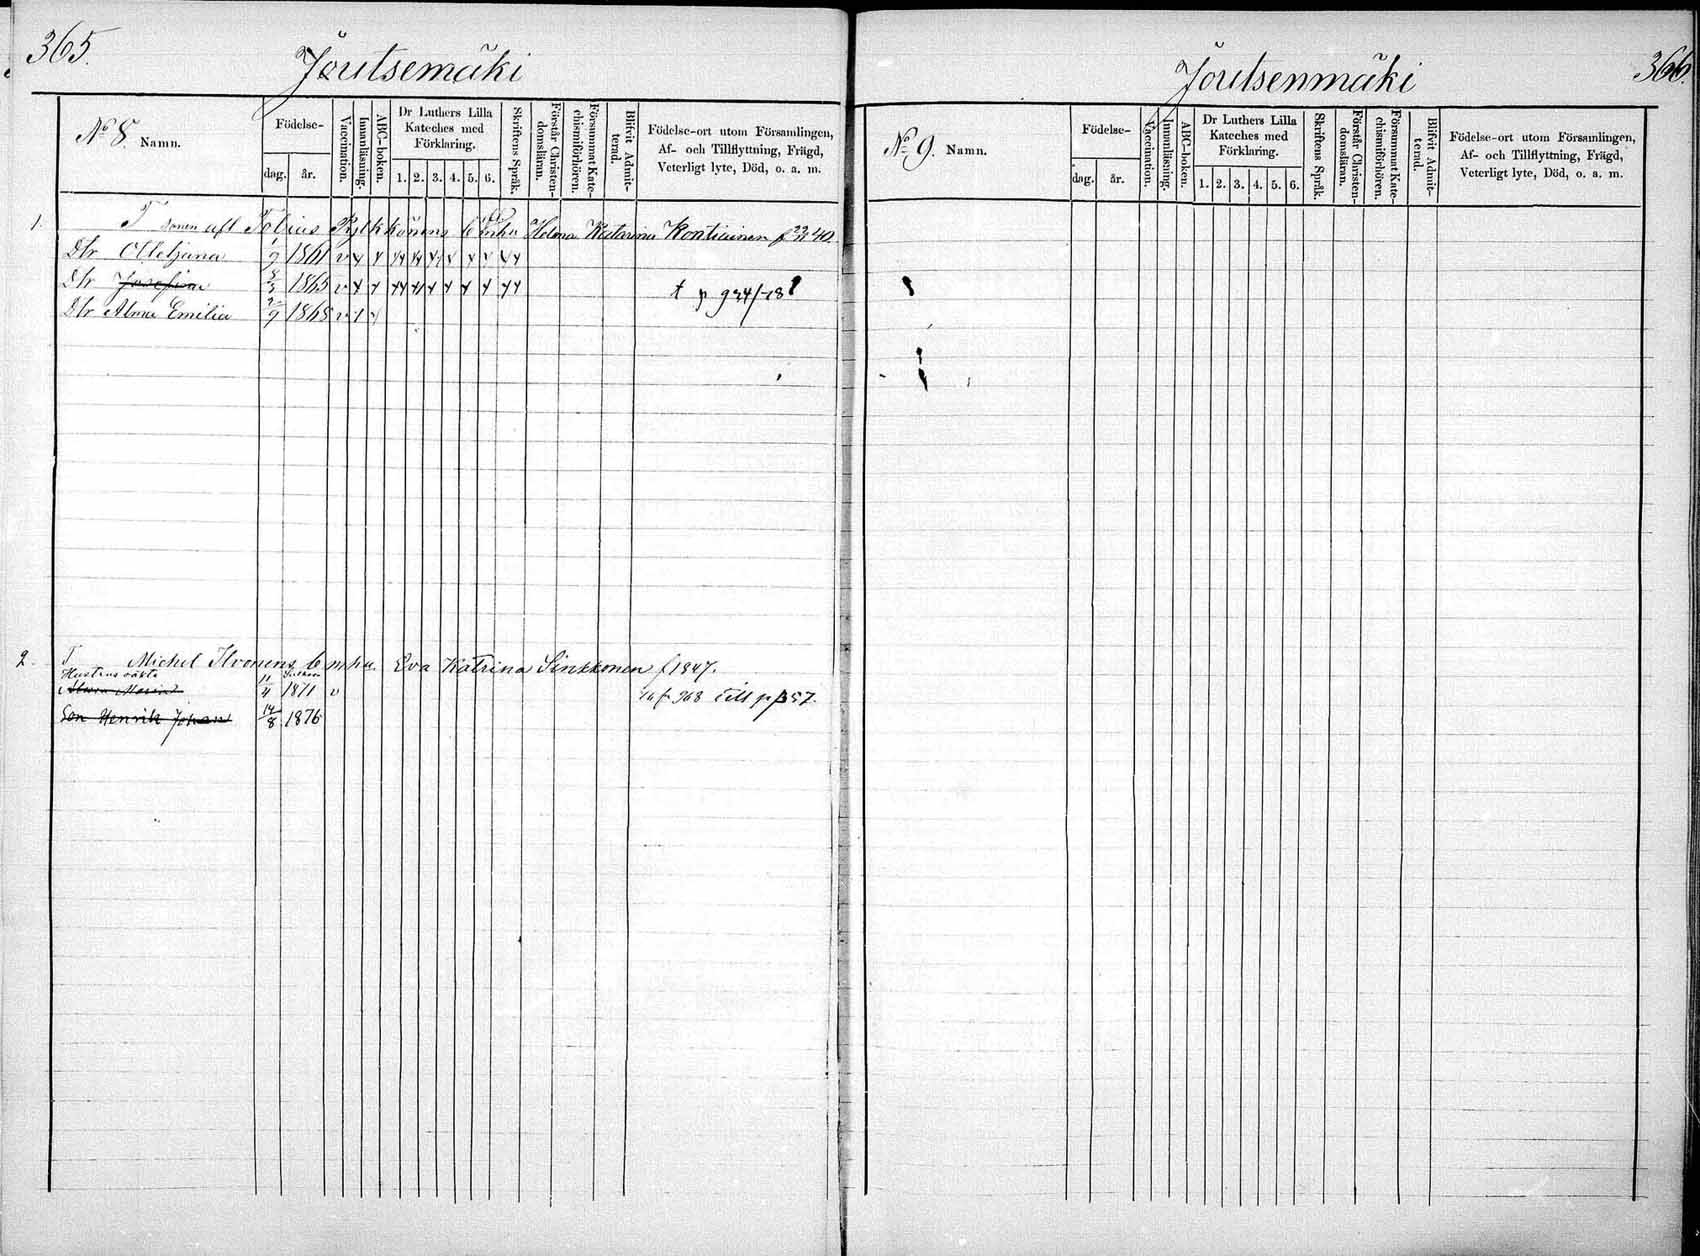 365.
Joutsemäki
No 8. Namn.
Födelse-
dag. år.
Vaccination.
Innanläsning.
ABC-boken.
Dr Luthers Lilla
Kateches med
Förklaring.
1. 2. 3. 4. 5. 6.
Skriftens Språk.
Förstår Christen-
domsläran.
Försummat Kate-
chismiförhören.
Blifvit Admit-
terad.
Födelse-ort utom Församlingen,
Af- och Tillflyttning, Frägd,
Veterligt lyte, Död, o. a. m.
1. T sonen afl Tobias Kontiainen f 23/11 40.
Dtr 1/9 1861 v
Dtr Josefina 5/3 1865 v † p 934/78
Dtr Anna Emilia 2/9 1868 v
2. T Michel Ilvonens Enka Eva Katrina Sinkkonen f 1847.
Hustrus oäkta
11/4 1871 v 76 fr 968 till p 357.
Son Henrik Johan 14/8 1876
Joutsenmäki
366.
No 9. Namn.
Födelse-
dag. år.
Vaccination.
Innanläsning.
ABC-boken.
Dr Luthers Lilla
Kateches med
Förklaring.
1. 2. 3. 4. 5. 6.
Skriftens Språk.
Förstår Christen-
domsläran.
Försummat Kate-
chismiförhören.
Blifvit Admit-
terad.
Födelse-ort utom Församlingen,
Af- och Tillflyttning, Frägd,
Veterligt lyte, Död, o. a. m.